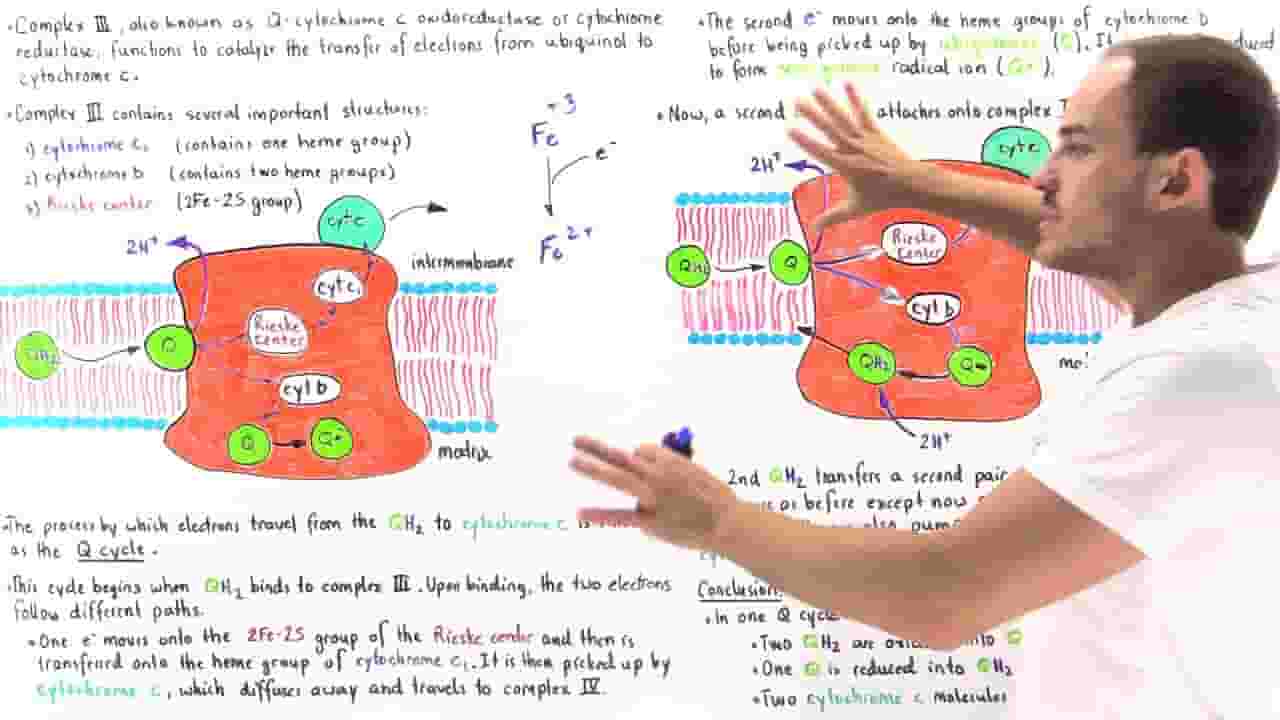 • Complex III, also known as Q-cytochrome c oxidoreductase or cytochrome
reductase, functions to catalyze the transfer of electrons from ubiquinol to
cytochrome c.
• Complex III contains several important structures:
1) cytochrome c₁ (contains one heme group)
2) cytochrome b (contains two heme groups)
3) Rieske center (2Fe-2S group)
Fe +3
e⁻
Fe 2+
cyt c
2H⁺
intermembrane
cyt c₁
Rieske
center
QH₂
Q
cyt b
Q
Q•⁻
matrix
• The process by which electrons travel from the QH₂ to cytochrome c is
as the Q cycle.
• This cycle begins when QH₂ binds to complex III. Upon binding, the two electrons
follow different paths.
• One e⁻ moves onto the 2Fe-2S group of the Rieske center and then is
transferred onto the heme group of cytochrome c₁. It is then picked up by
cytochrome c, which diffuses away and travels to complex IV.
• The second e⁻ moves onto the heme groups of cytochrome b
before being picked up by ubiquinone (Q). It
to form semiquinone radical ion (Q•⁻).
• Now, a second attaches onto complex
2H⁺
cyt c
Rieske
Center
QH₂
Q
cyt b
QH₂
Q•⁻
2H⁺
2nd QH₂ transfers a second pair
as before except now
also
Conclusion:
• In one Q cycle
• Two QH₂ are into Q
• One Q is reduced into QH₂
• Two cytochrome c molecules